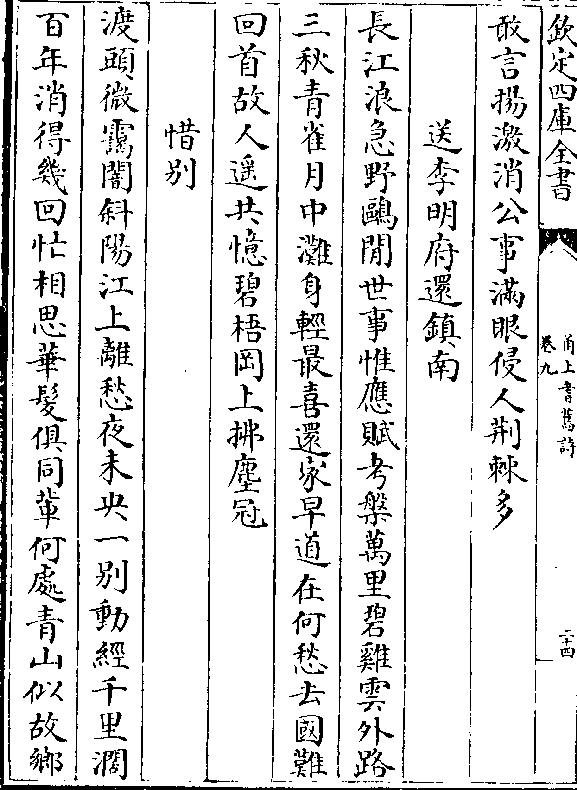 欽定四庫全書
甬上耆舊詩
卷九
二十四
敢言揚激消公事滿眼侵人荆棘多
送李明府還鎮南
長江浪急野鷗閒世事惟應賦考槃萬里碧雞雲外路
三秋青雀月中灘身輕最喜還家早道在何愁去國難
回首故人遥共憶碧梧岡上拂塵冠
惜别
渡頭微靄闇斜陽江上離愁夜未央一别動經千里濶
百年消得幾回忙相思華髪俱同輩何處青山似故鄉